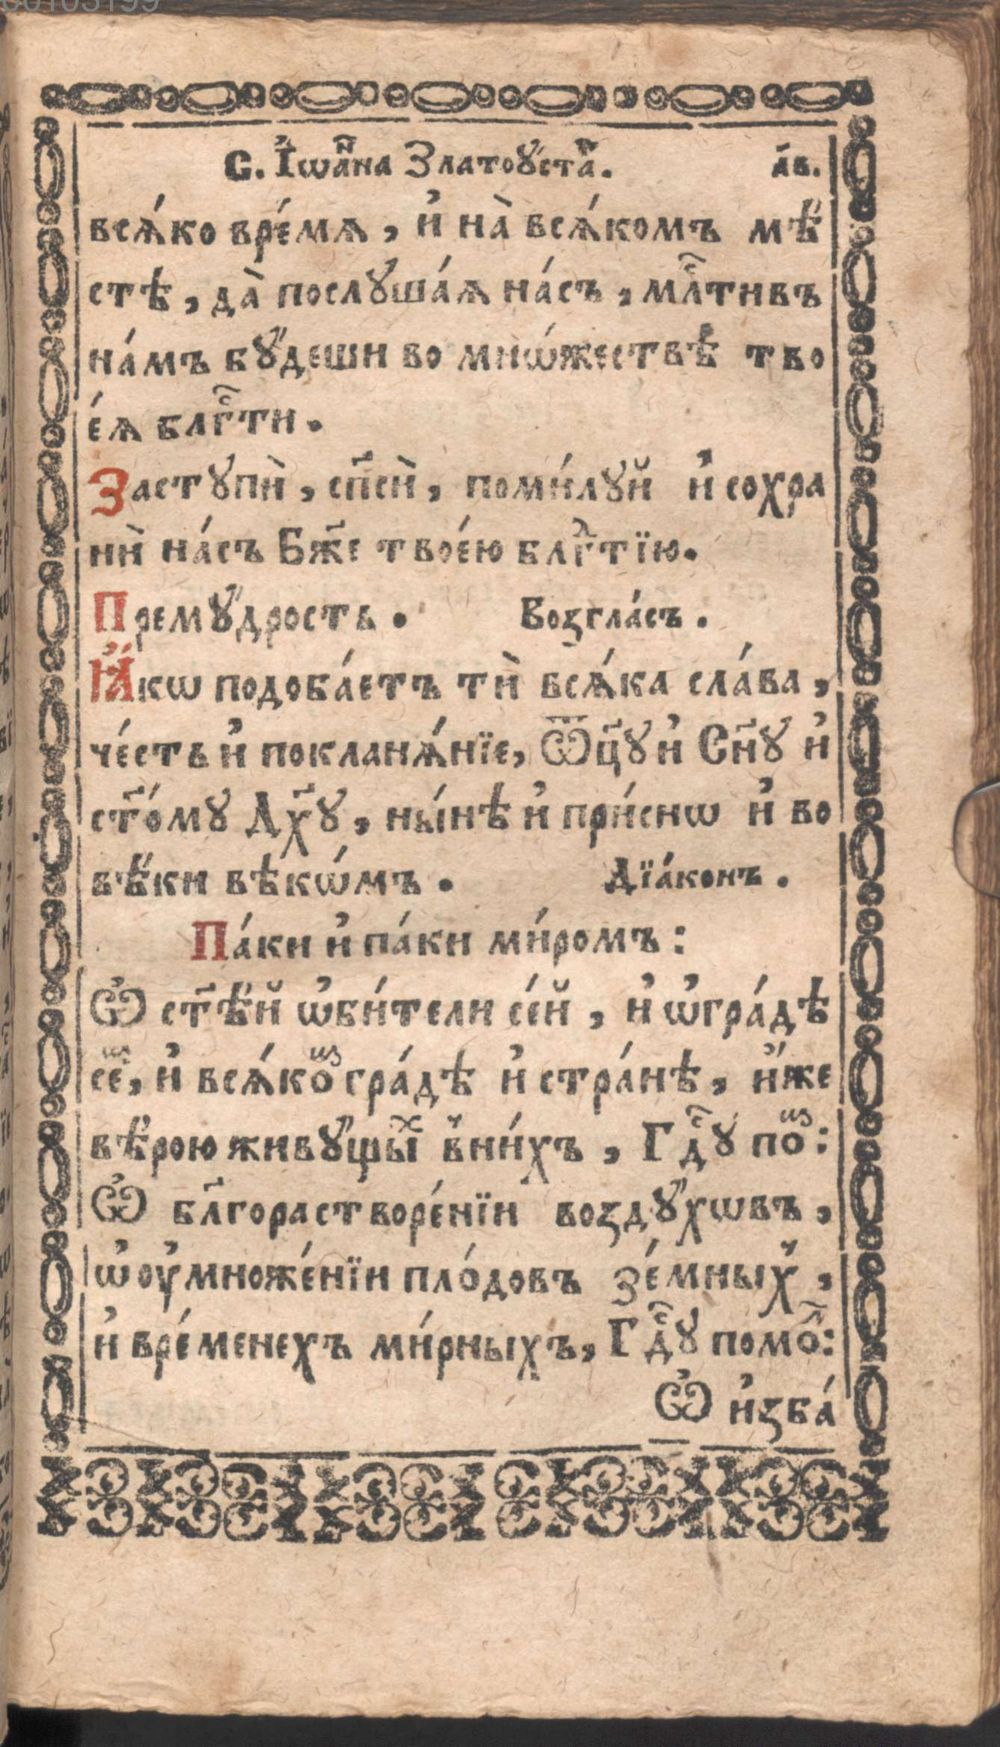 00103199
С. І҆ѡа́нна Златоꙋ́ста. л҃в.
всѧ́ко вре́мѧ, и҆ на̀ всѧ́комъ мѣ́
стѣ, да̀ послꙋша́ѧ на́съ, млⷭ҇тивъ
на́мъ бꙋ́деши во мнѡ́жествѣ тво
е́ѧ блгⷭ҇ти.
Застꙋпѝ, сп҃сѝ, поми́лꙋй и҆ сохра
нѝ на́съ Бж҃е твое́ю блгⷭ҇тїю.
Премꙋ́дрость. Возгла́съ.
Ꙗ҆́кѡ подоба́етъ тѝ всѧ́ка сла́ва,
че́сть и҆ покланѧ́нїе, Ѿц҃ꙋ и҆ Сн҃ꙋ и҆
ст҃о́мꙋ Дх҃ꙋ, ны́нѣ и҆ при́снѡ и҆ во
вѣ́ки вѣкѡ́мъ. Дїа́конъ.
Па́ки и҆ па́ки ми́ромъ:
Ѽ ст҃ѣ́й ѡ҆би́тели се́й, и҆ ѡ҆гра́дѣ
се́ⷨ, и҆ всѧ́коⷨ гра́дѣ и҆ стра́нѣ, и҆́же
вѣ́рою живꙋ́щыⷯ в̾ни́хъ, Гдⷭ҇ꙋ поⷨ:
Ѽ бл҃горастворе́нїи воздꙋ́хѡвъ,
ѡ҆ оу҆множе́нїи пло́довъ зе́мныхъ,
и҆ вре́менехъ ми́рныхъ, Гдⷭ҇ꙋ помо́:
Ѽ и҆зба́